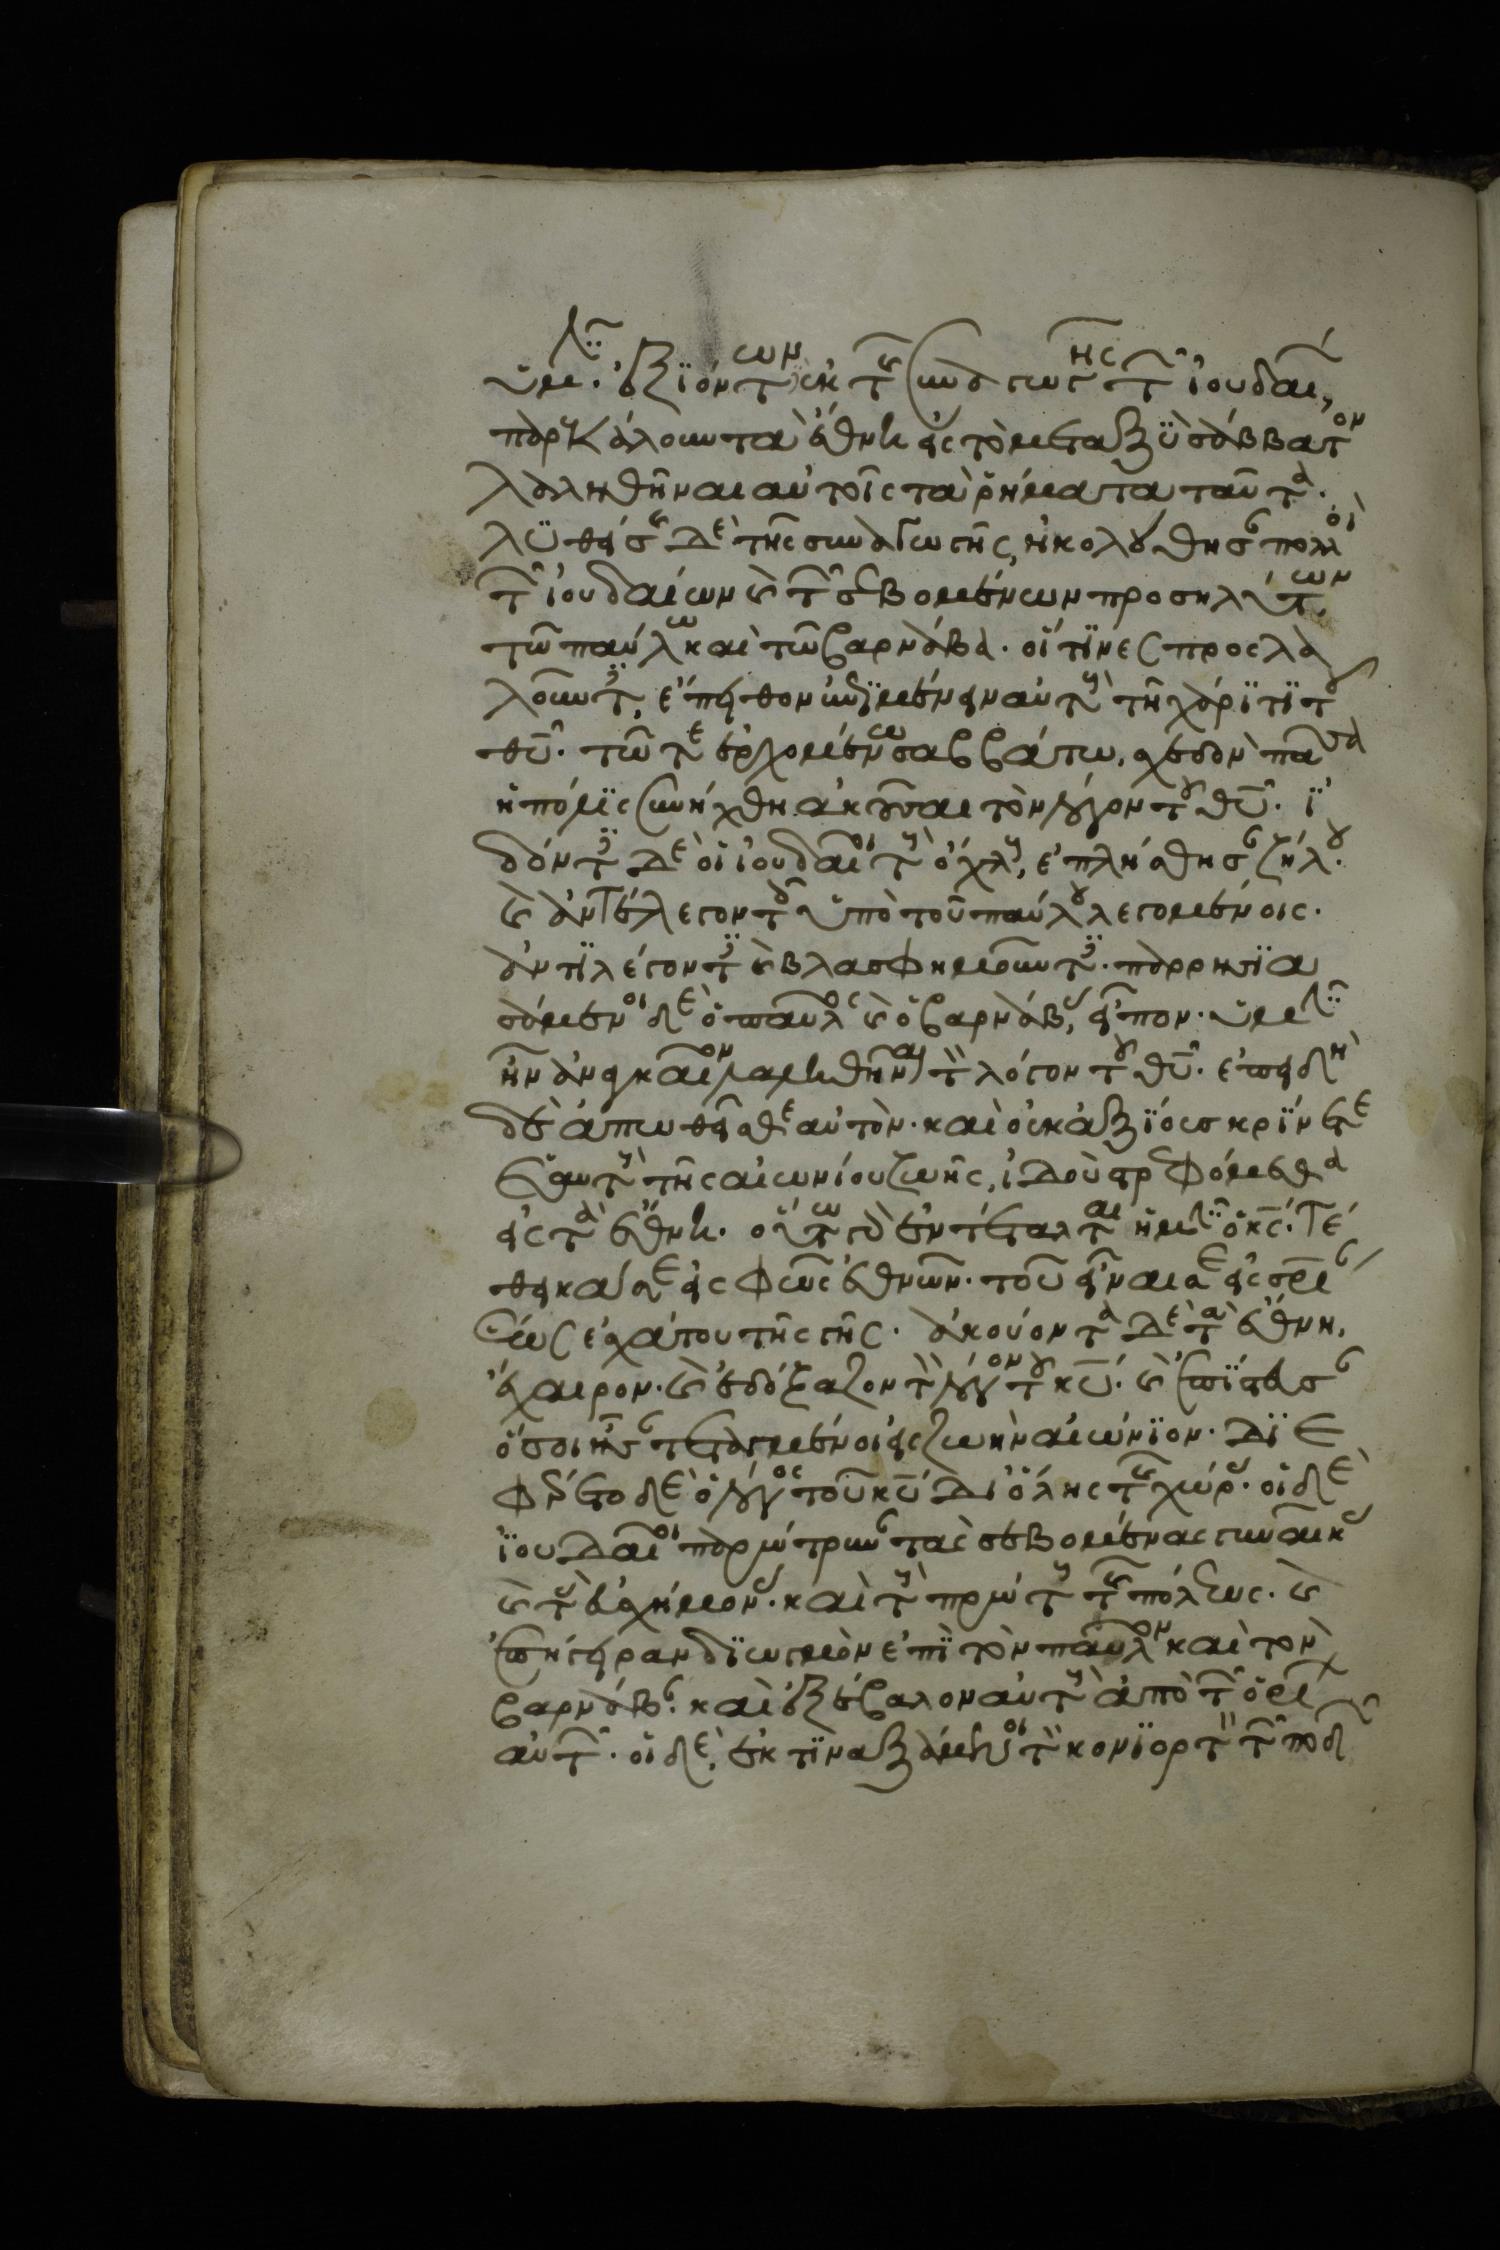 ὑμῖν. ἐξιόντων ἐκ τῆς συναγωγῆς τῶν ἰουδαίων,
παρεκάλουν τὰ ἔθνη εἰς τὸ μεταξὺ σάββατον
λαληθῆναι αὐτοῖς τὰ ῥήματα ταῦτα.
λυθείσης δὲ τῆς συναγωγῆς, ἠκολούθησαν πολλοὶ
τῶν ἰουδαίων καὶ τῶν σεβομένων προσηλύτων,
τῷ παύλῳ καὶ τῷ βαρνάβα. οἵτινες προσλα
λοῦντες, ἔπειθον ἐμμένειν αὐτοὺς τῇ χάριτι τοῦ
θῦ. τῷ τε ἐρχομένῳ σαββάτῳ, σχεδὸν πᾶσα
ἡ πόλις συνήχθη ἀκοῦσαι τὸν λόγον τοῦ θῦ. ἰ
δόντες δὲ οἱ ἰουδαῖοι τοὺς ὄχλους, ἐπλήσθησαν ζήλου.
καὶ ἀντέλεγον τοῖς ὑπὸ τοῦ παύλου λεγομένοις.
ἀντιλέγοντες καὶ βλασφημοῦντες. παρρησια
σάμενοι δὲ ὁ παῦλος καὶ ὁ βαρνάβας, εἶπον. ὑμῖν
ἦν ἀναγκαῖον λαληθῆναι τὸν λόγον τοῦ θῦ. ἐπειδὴ
δὲ ἀπωθεῖσθε αὐτὸν. καὶ οὐκ ἀξίους κρίνετε
ἑαυτοὺς τῆς αἰωνίου ζωῆς, ἰδοὺ στρεφόμεθα
εἰς τὰ ἔθνη. οὕτω γὰρ ἐντέταλται ἡμῖν ὁ κς. τέ
θεικά σε εἰς φῶς ἐθνῶν. τοῦ εἶναι σε εἰς σρίαν
ἕως ἐσχάτου τῆς γῆς. ἀκούοντα δὲ τὰ ἔθνη,
ἔχαιρον. καὶ ἐδόξαζον τὸν λόγον τοῦ κυ. καὶ ἐπίστευσαν
ὅσοι ἦσαν τεταγμένοι εἰς ζωὴν αἰώνιον. διε
φέρετο δὲ ὁ λόγος τοῦ κυ δι' ὅλης τῆς χώρας. οἱ δὲ
ἰουδαῖοι παρώτρυναν τὰς σεβομένας γυναῖκας
καὶ τὰς εὐσχήμονας. καὶ τοὺς πρώτους τῆς πόλεως. καὶ
ἐπήγειραν διωγμὸν ἐπὶ τὸν παῦλον καὶ τὸν
βαρνάβαν. καὶ ἐξέβαλον αὐτοὺς ἀπὸ τῶν ὁρίων
αὐτῶν. οἱ δὲ, ἐκτιναξάμενοι τὸν κονιορτὸν τῶν ποδῶν